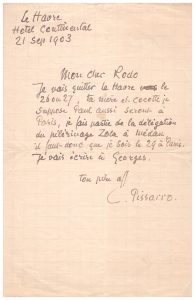 Le Havre
Hotel Continental
21 Sep 1903
Mon cher Rodo
Je vais quitter le Havre vers le
26 ou 27, ta mère et cocotte je
suppose Paul aussi seront à
Paris, je fais partie de la délégation
du pélérinage Zola à médan
il faut donc que je sois le 29 à Paris.
Je vais écrire à Georges.
ton père aff
C. Pissarro